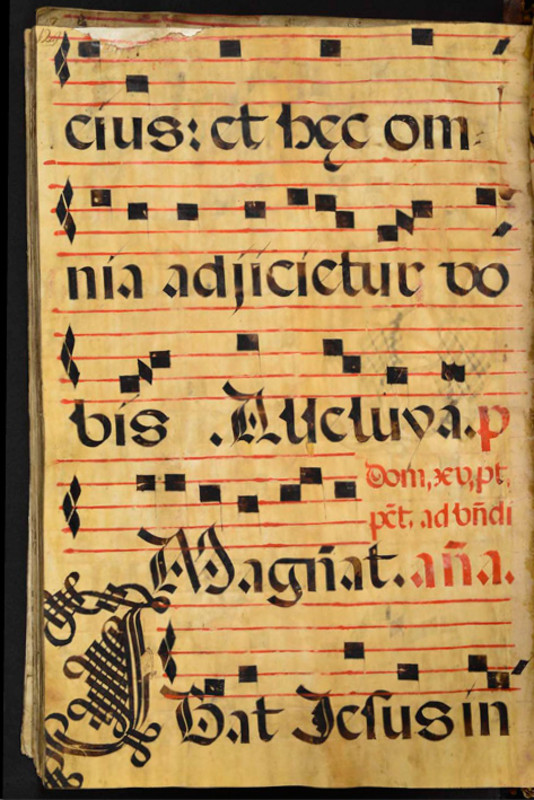 cius: et hęc om
nia adjicietur vo
bis . Alleluya. p
Dom, xv, pt,
pēt. ad bñdi
Magñat. aña.
Ibat Jesus in